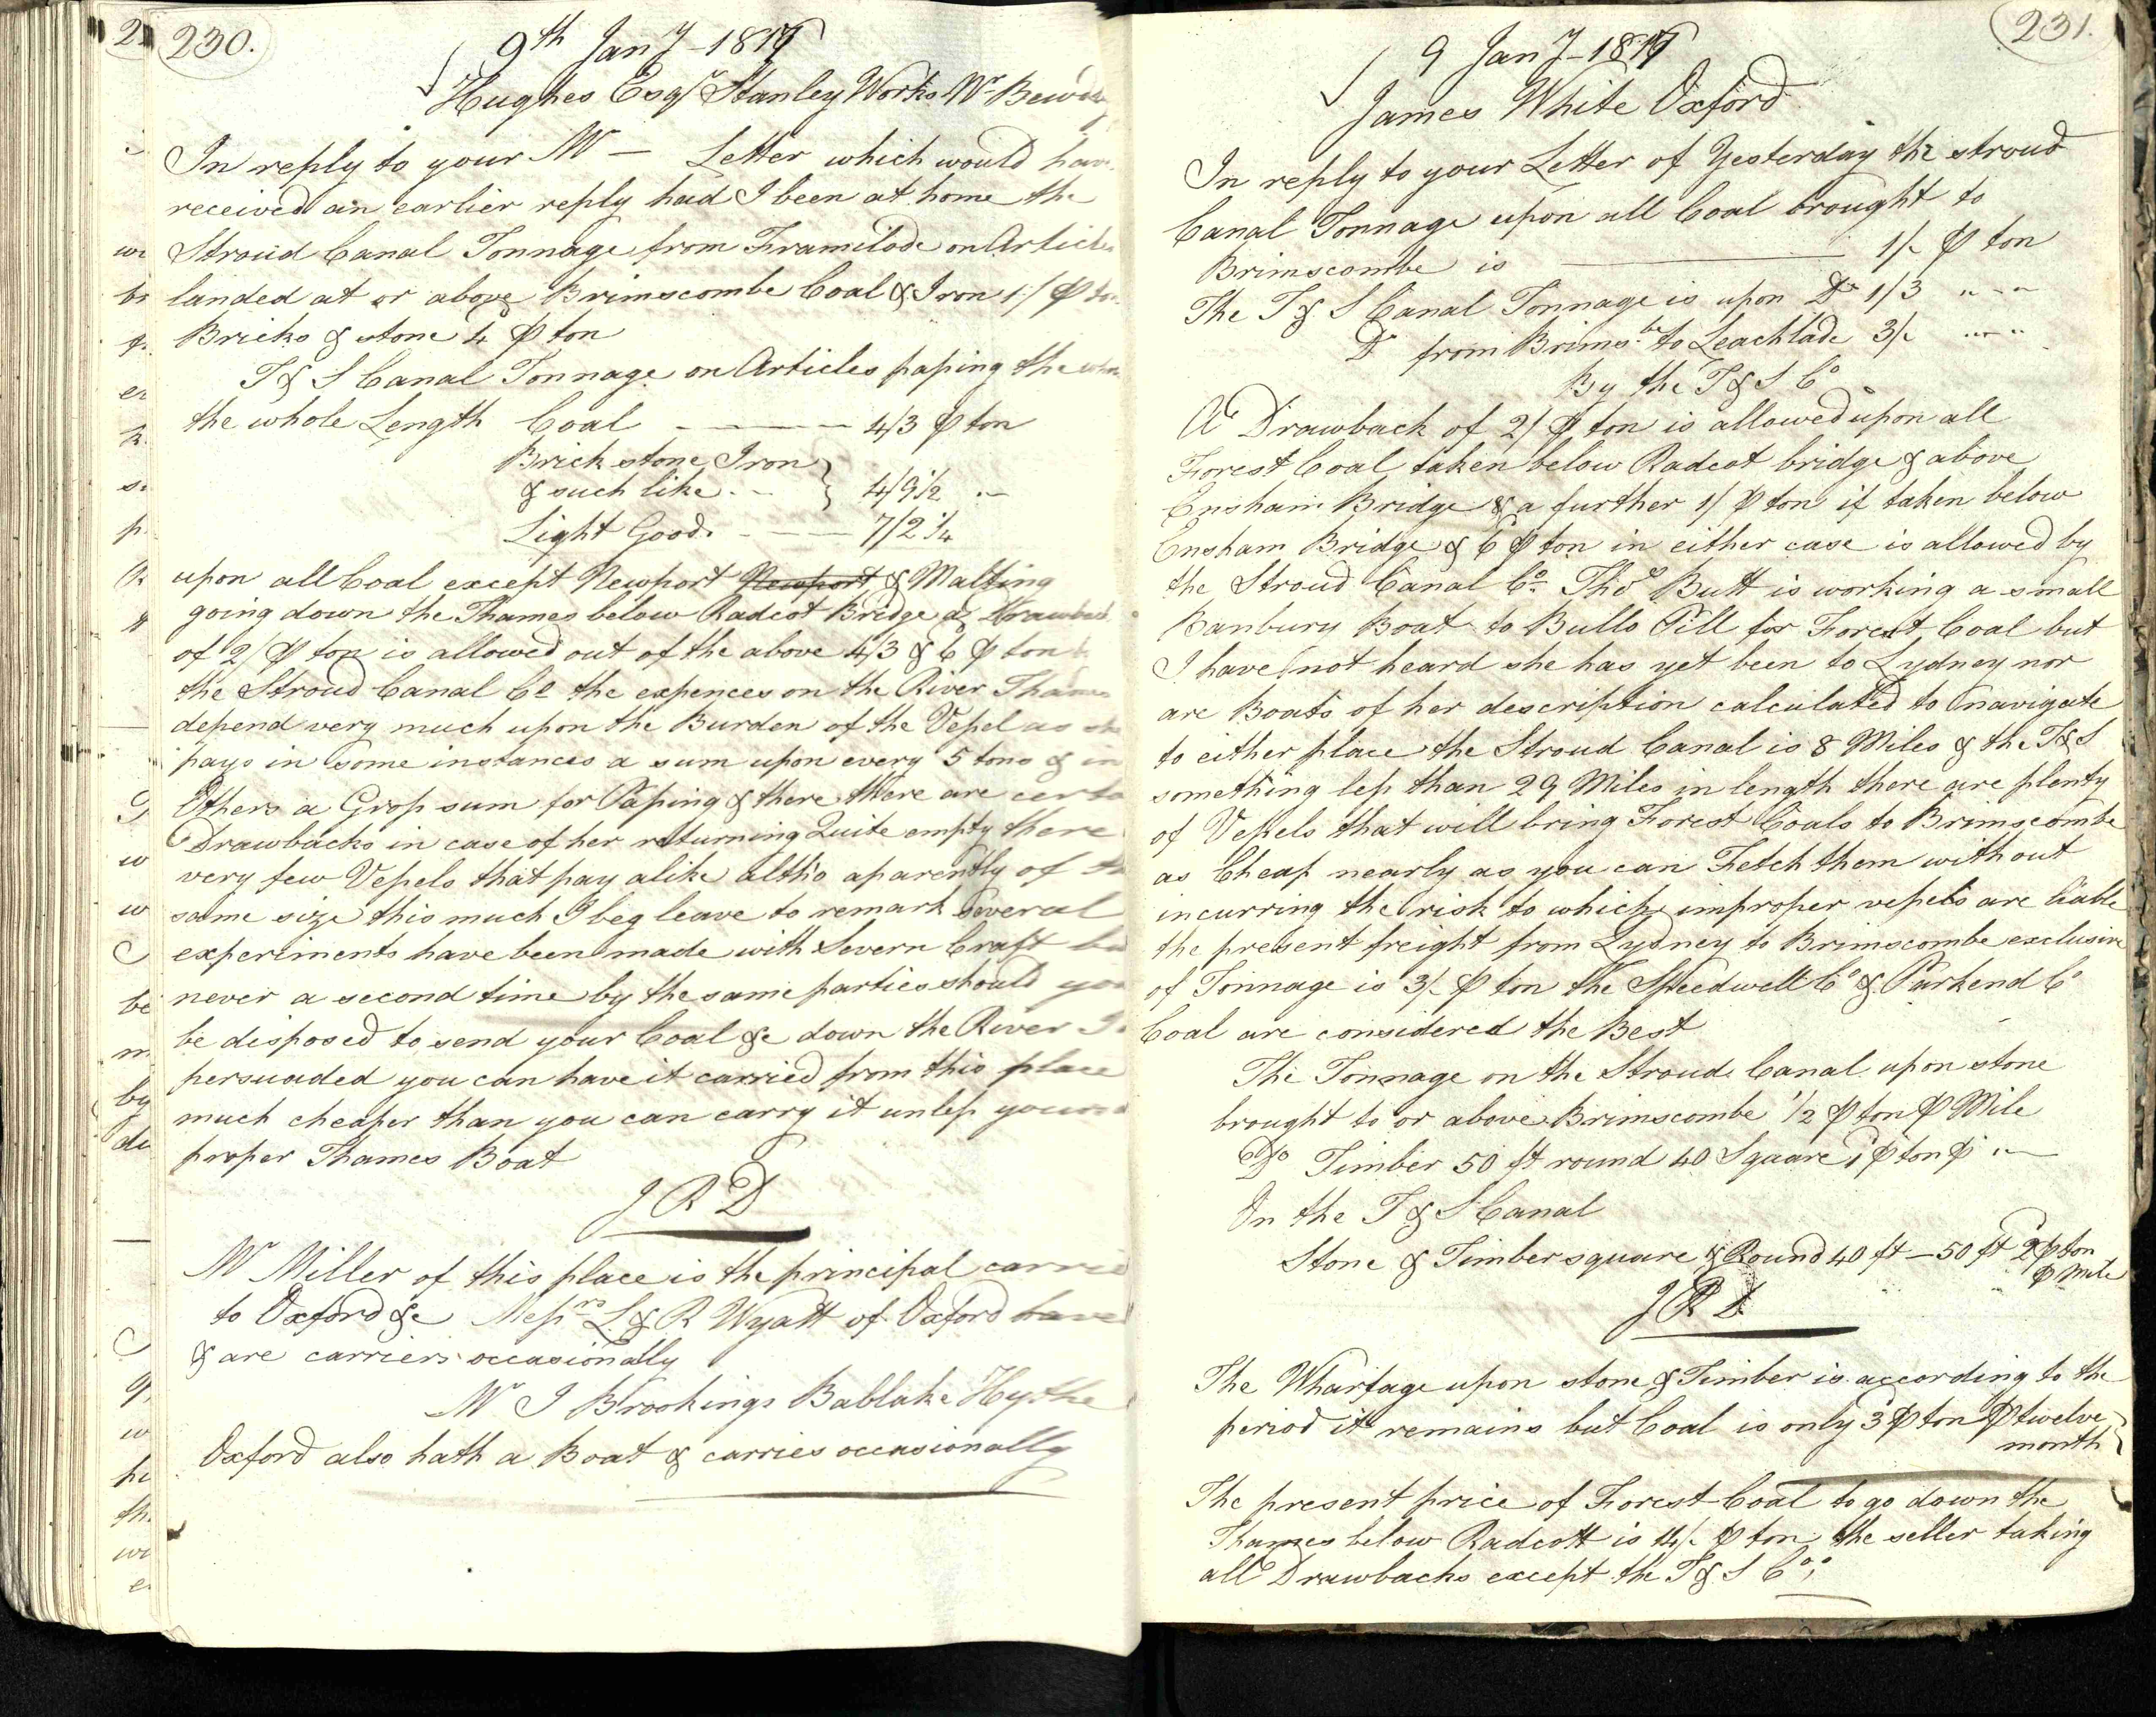 230.
9th Jany - 1819
Hughes Esqr Stanley Works Nr Bewdley
In reply to your No — Letter which would have
received an earlier reply had I been at home the
Stroud Canal Tonnage from Framilode on Articles
landed at or above Brimscombe Coal & Iron 1/ ⅌ ton
Bricks & stone 4 ⅌ ton
T & S Canal Tonnage on Articles passing the whole
the whole Length Coal — — — — 4/3 ⅌ ton
Brick stone Iron
& such like - - } 4/9½ "
Light Goods - — — 7/2¼
upon all Coal except Newport Newport & Malting
going down the Thames below Radcot Bridge a Drawback
of 2/ ⅌ ton is allowed out of the above 4/3 & 6 ⅌ ton
the Stroud Canal Co the expences on the River Thames
depend very much upon the Burden of the Vessel as she
pays in some instances a sum upon every 5 tons & in
Others a Gross sum for Passing & there there are certain
Drawbacks in case of her returning Quite empty there
very few Vessels that pay alike altho aparently of the
same size this much I beg leave to remark several
experiments have been made with Severn Craft but
never a second time by the same parties should you
be disposed to send your Coal &c down the River I
persuaded you can have it carried from this place
much cheaper than you can carry it unless
proper Thames Boat
J R D
Mr Miller of this place is the principal carrier
to Oxford &c Messrs L & R Wyatt of Oxford have
& are carriers occasionally
Mr J Brookings Bablake Hythe
Oxford also hath a Boat & carries occasionally
231.
9 Jany - 1819
James White Oxford
In reply to your Letter of Yesterday the stroud
Canal Tonnage upon all Coal brought to
Brimscombe is ———— 1/- ⅌ ton
The T & S Canal Tonnage is upon Do 1/3 " "
Do from Brimsbe to Leachlade 3/- " "
By the T & S Co
A Drawback of 2/ ⅌ ton is allowed upon all
Forest Coal taken below Radcot bridge & above
Ensham Bridge & a further 1/ ⅌ ton if taken below
Ensham Bridge & 6 ⅌ ton in either case is allowed by
the Stroud Canal Co. Thos Butt is working a small
Banbury Boat to Bullo Pill for Forest Coal but
I have not heard she has yet been to Lydney nor
are Boats of her description calculated to navigate
to either place the Stroud Canal is 8 Miles & the T & S
something less than 29 Miles in length there are plenty
of Vessels that will bring Forest Coals to Brimscombe
as Cheap nearly as you can Fetch them without
incurring the risk to which improper vessels are liable
the present freight from Lydney to Brimscombe exclusive
of Tonnage is 3/- ⅌ ton the Speedwell Co & Parkend Co
Coal are considered the Best
The Tonnage on the Stroud Canal upon stone
brought to or above Brimscombe ½ ⅌ ton ⅌ Mile
Do Timber 50 ft round 40 Square 1 ⅌ ton ⅌ "
On the T & S Canal
Stone & Timber square & Round 40 ft — 50 ft 2 ⅌ ton
⅌ Mile
J R D
The Wharfage upon stone & Timber is according to the
period it remains but Coal is only 3 ⅌ ton ⅌ twelve
month
The present price of Forest Coal to go down the
Thames below Radcott is 14/- ⅌ ton the seller taking
all Drawbacks except the T & S Co;